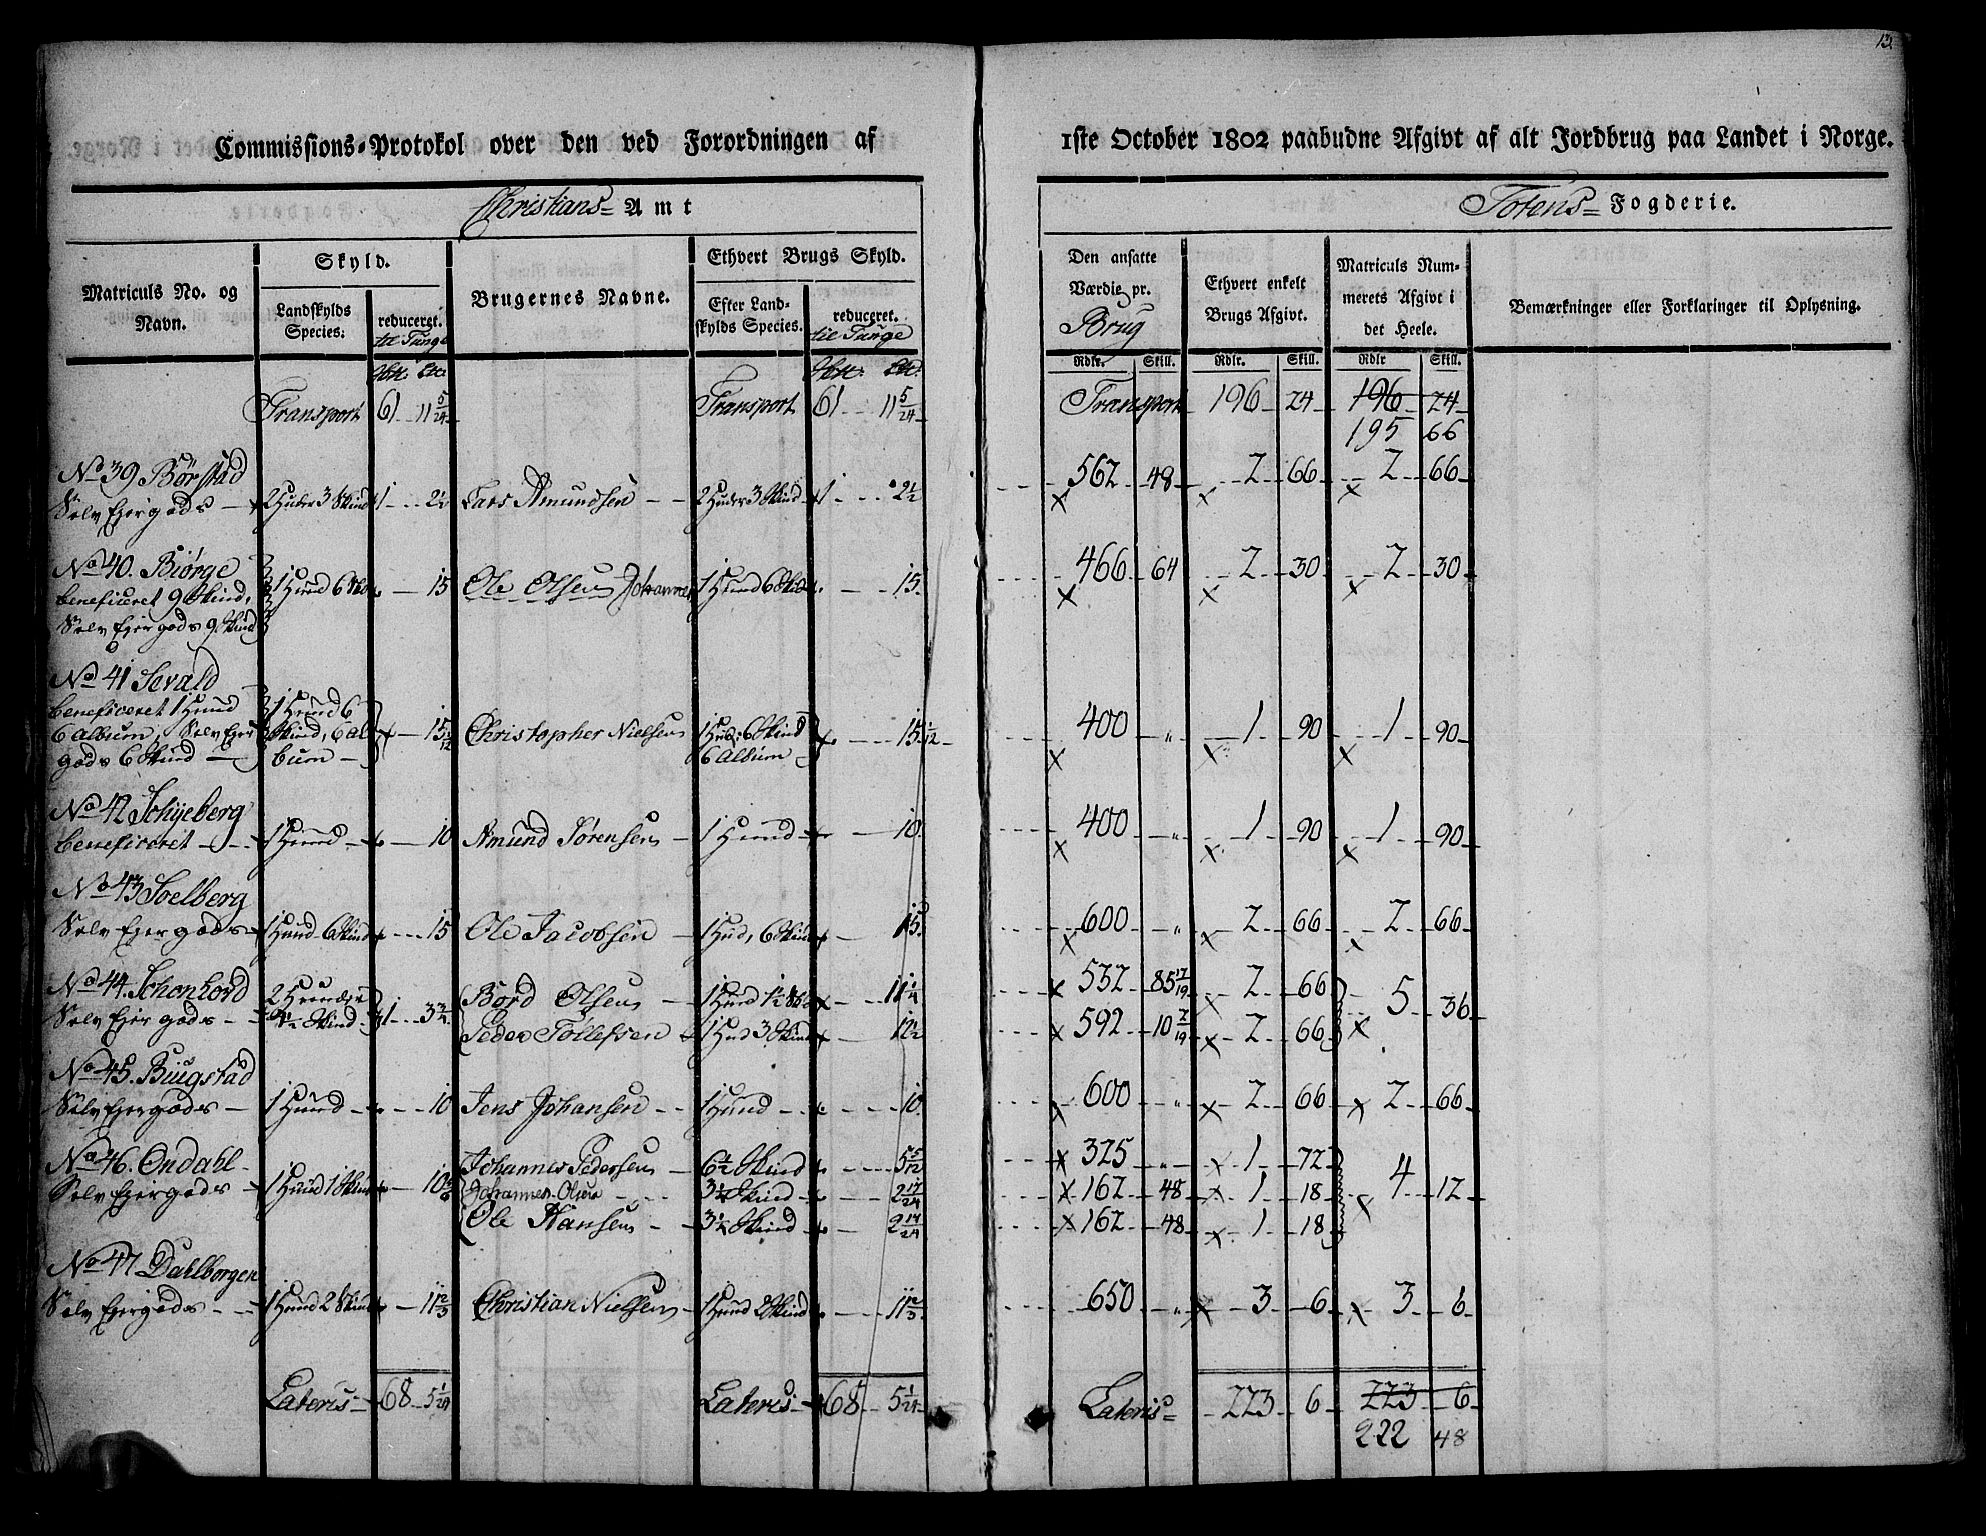 13.
Commissions-Protokol over den ved Forordningen af 1ste October 1802 paabudne Afgivt af alt Jordbrug paa Landet i Norge.
Christians= Amt
Totens= Fogderie.
Matriculs No. og Navn.
Skyld.
Landskylds Species.
reduceret. til Tunge
Brugernes Navne.
Ethvert Brugs Skyld.
Efter Landskylds Species.
reduceret. til Tunge
Den ansatte Værdie pr. Brug
Ethvert enkelt Brugs Afgivt.
Matriculs Nummerets Afgivt i det Heele.
Bemærkninger eller Forklaringer til Oplysning.
Rdlr. Skill. Rdlr. Skill. Rdlr Skill.
Transport 61 11 5/24 Transport 61 11 5/24 Transport 196 24 196 24
195 66
No 39 Børstad
Selv Ejer gods 2 Huder 3 Skind 1 2½ Lars Amundsen 2 Huder 3 Skind 1 2½ 562 48 2 66 2 66
No 40. Biørge
beneficeret 9 Skind, 1 Hud 6 15 Ole Olsen Johannes 1 Hud 6 Skind 15. 466 64 2 30 2 30
Selv Ejer gods 9 Skind
No 41 Sevald
beneficeret 1 Hud 1 Hud 6
6 Album, Selv Ejer Skind, 6 Al 15 5/12 Christopher Nielsen 1 Hud, 6 Skind 15 5/12 400 " 1 90 1 90
gods 6 Skind bum 6 Album
No 42 Schyeberg
beneficeret 1 Hud 10 Amund Sørensen 1 Hud 10. 400 " 1 90 1 90
No 43 Soelberg
Selv Ejer gods 1 Hud 6 Skind 15 Ole Jacobsen 1 Hud, 6 Skind 15. 600 " 2 66 2 66
No 44. Schonhord 2 Huder Bord Olsen 1 Hud 1½ 11¼ 532 85 17/19 2 66
Selv Ejer gods 4½ Skind 1 3¾ Peder Tollefsen 1 Hud 3 Skind 12½ 592 10 2/19 2 66 5 36
No 45. Bugstad
Selv Ejer gods 1 Hud 10 Jens Johansen 1 Hud 10. 600 " 2 66 2 66
No 46. Ondahl Johannes Pedersen 6½ Skind 5 5/12 325 " 1 72
Selv Ejer gods 1 Hud 1 Skind 10 5/6 Johannes Olsen 3¼ Skind 2 17/24 162 48 1 18 4 12
Ole Hansen 3¼ Skind 2 17/24 162 48 1 18
No 47 Dahlborgen
Selv Ejer gods 1 Hud 2 Skind 11 2/3 Christian Nielsen 1 Hud 2 Skind 11 2/3 650 " 3 6 3 6
Lateris 68 5 1/24 Lateris 68 5 1/24 Lateris 223 6 223 6
222 48